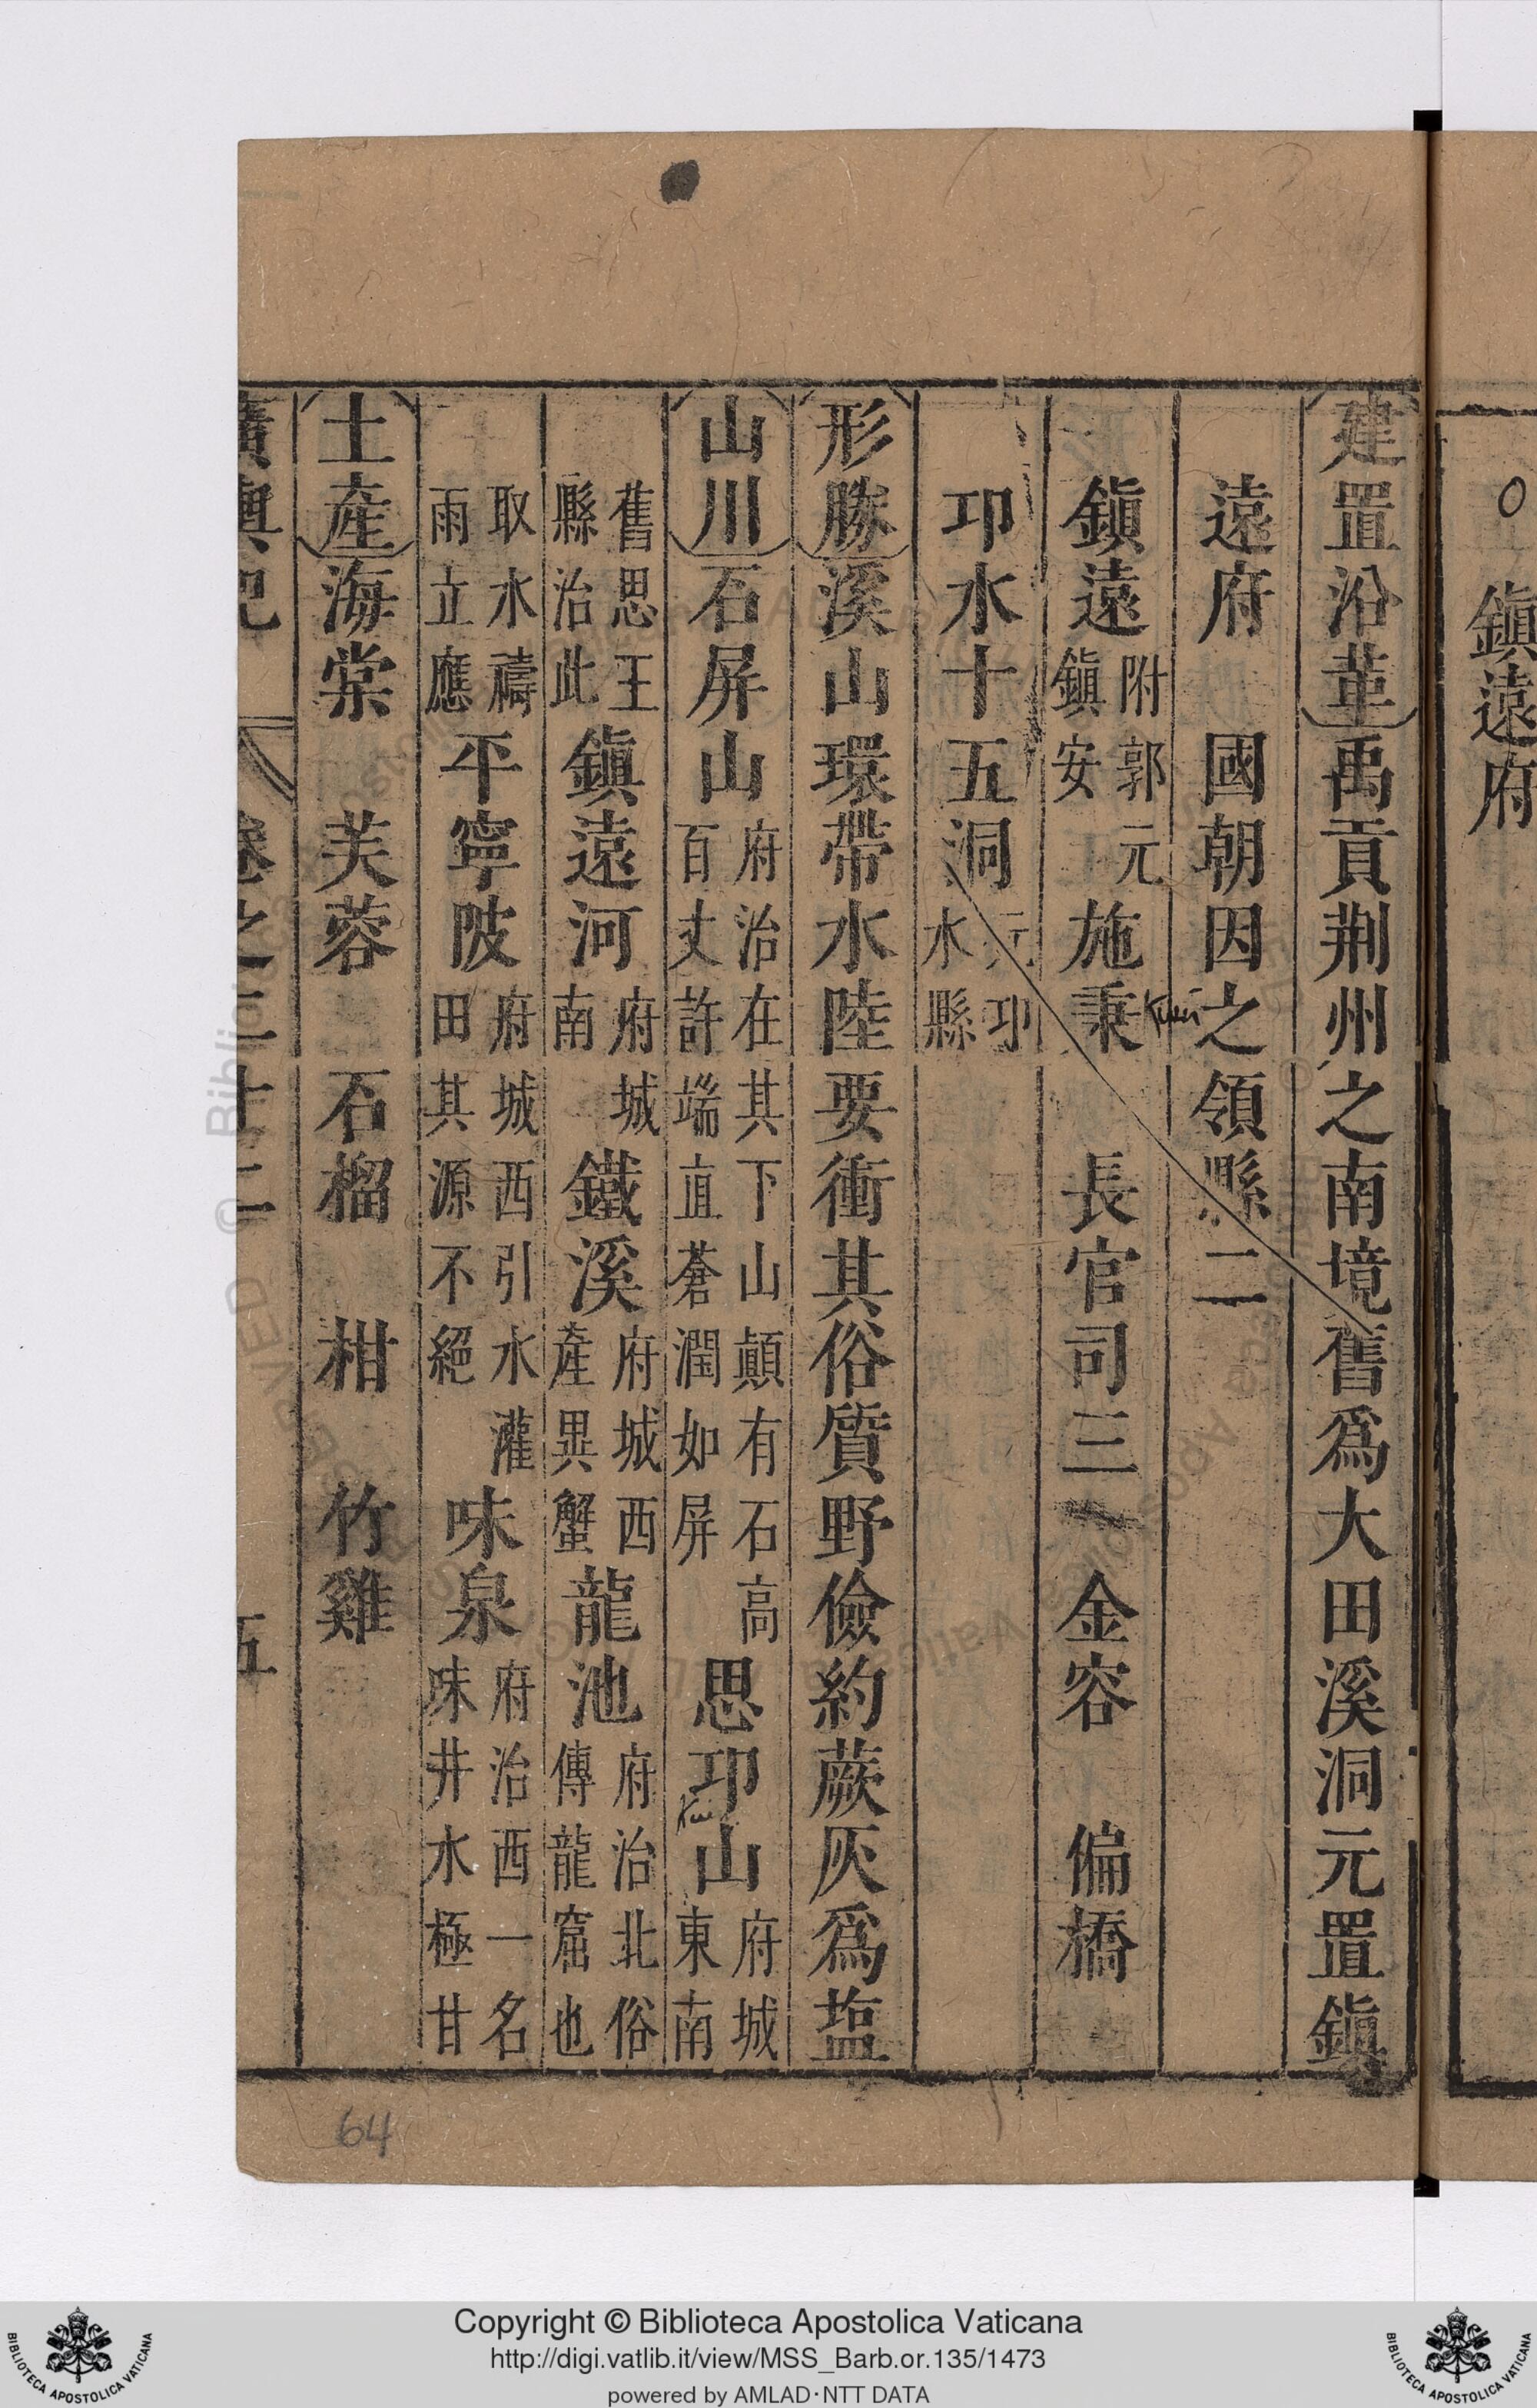 鎮遠府
建置沿革禹貢荆州之南境舊爲大田溪洞元置鎮
遠府　國朝因之領縣二
鎮遠附郭元鎮安施秉　長官司三　金容　偏橋
卭水十五洞元卭水縣
形勝溪山環帶水陸要衝其俗質野儉約蕨灰爲塩
山川石屏山府治在其下山顛有石高百丈許端直蒼潤如屏思卭山府城東南
舊思王縣治此鎮遠河府城南鐵溪府城西產異蟹龍池府治北俗傳龍窟也
取水禱雨立應平寧陂府城西引水灌田其源不絕味泉府治西一名味井水極甘
土產海棠　芙蓉　石榴　柑　竹雞
廣輿記　卷之二十二　五
64
Copyright © Biblioteca Apostolica Vaticana
http://digi.vatlib.it/view/MSS_Barb.or.135/1473
powered by AMLAD·NTT DATA
BIBLIOTECA APOSTOLICA VATICANA
BIBLIOTECA APOSTOLICA VATICANA